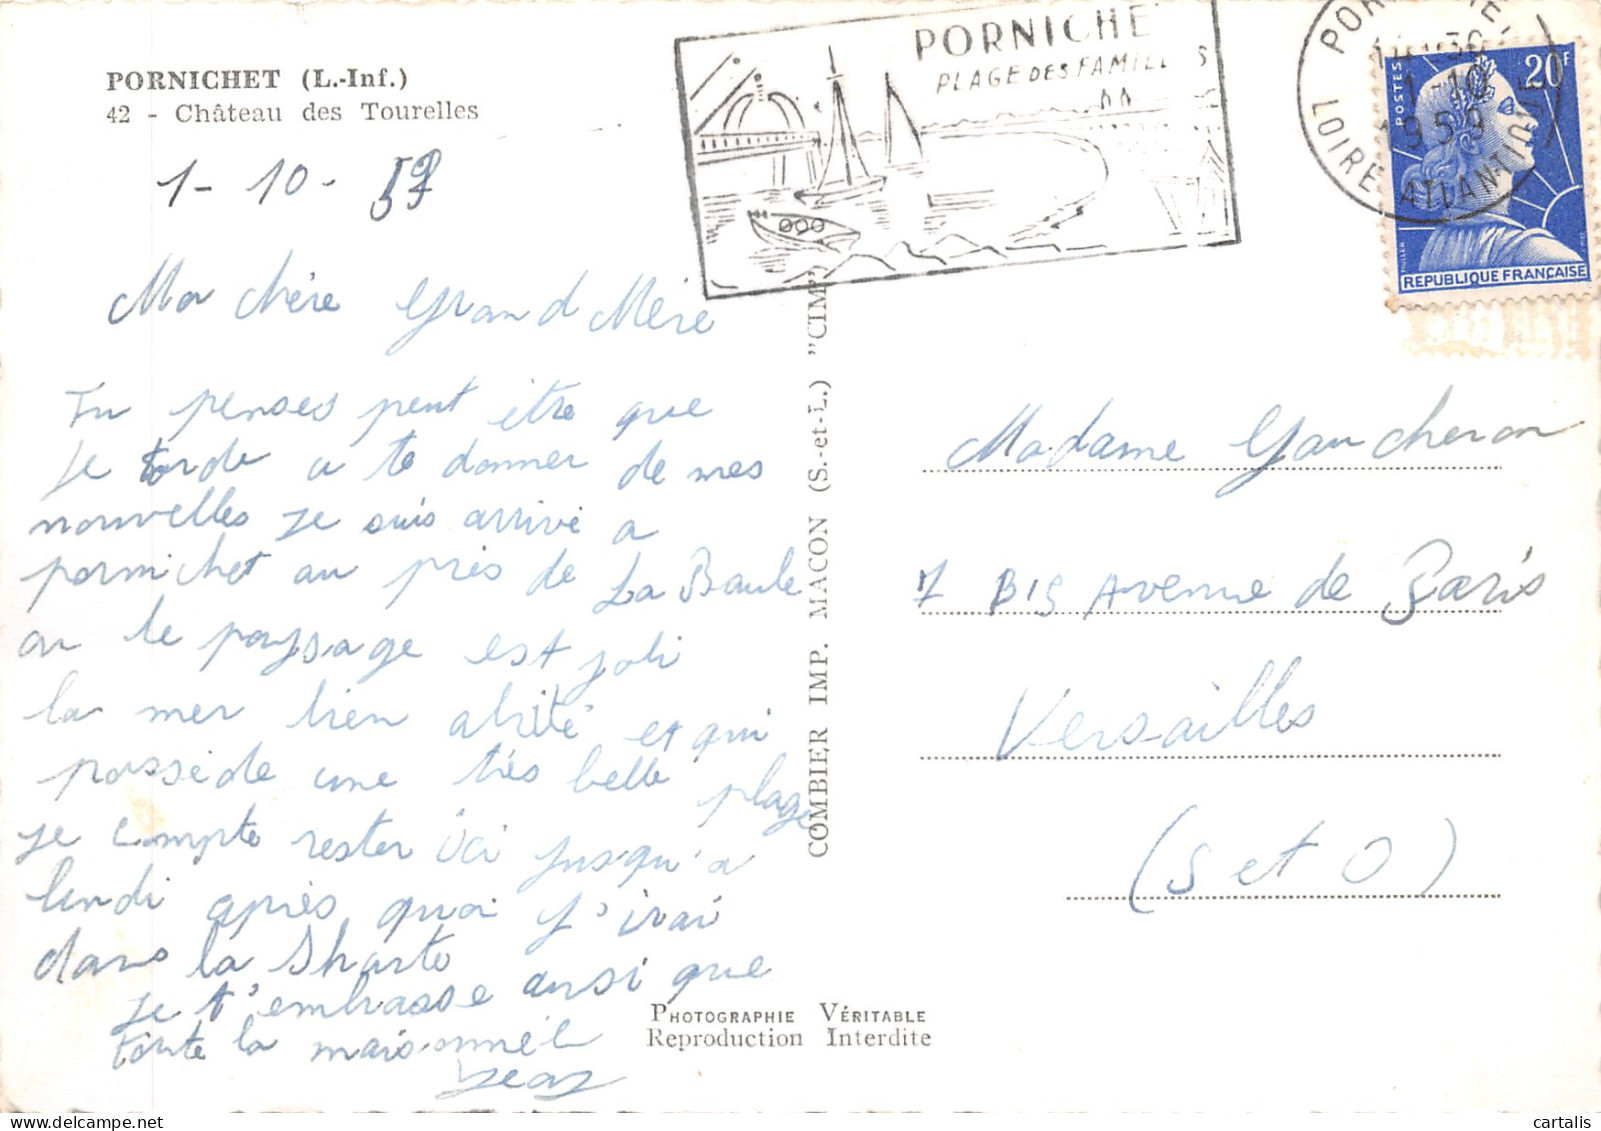 PORNICHET (L.-Inf.)
42 - Château des Tourelles
1-10-59
PORNICHE
PLAGE DES FAMILL S
LOIRE ATLANTIQUE
1-10
1959
POSTES
20F
MULLER
REPUBLIQUE FRANÇAISE
Ma chère Grand Mère
Tu penses peut être que
Je tarde a te donner de mes
nouvelles Je suis arrivé a
pornichet au près de La Baule
ou le paysage est joli
la mer bien abrité et qui
possède une très belle plage
je compte rester ici jusqu'a
lundi après quoi j'irai
dans la Sharte
Je t'embrasse ainsi que
toute la maisonnée
Jean
COMBIER IMP. MACON (S.-et-L.) "CIM"
Madame Gaucheron
7 BIS Avenue de Paris
Versailles
(S et O)
PHOTOGRAPHIE VÉRITABLE
Reproduction Interdite
cartalis.com